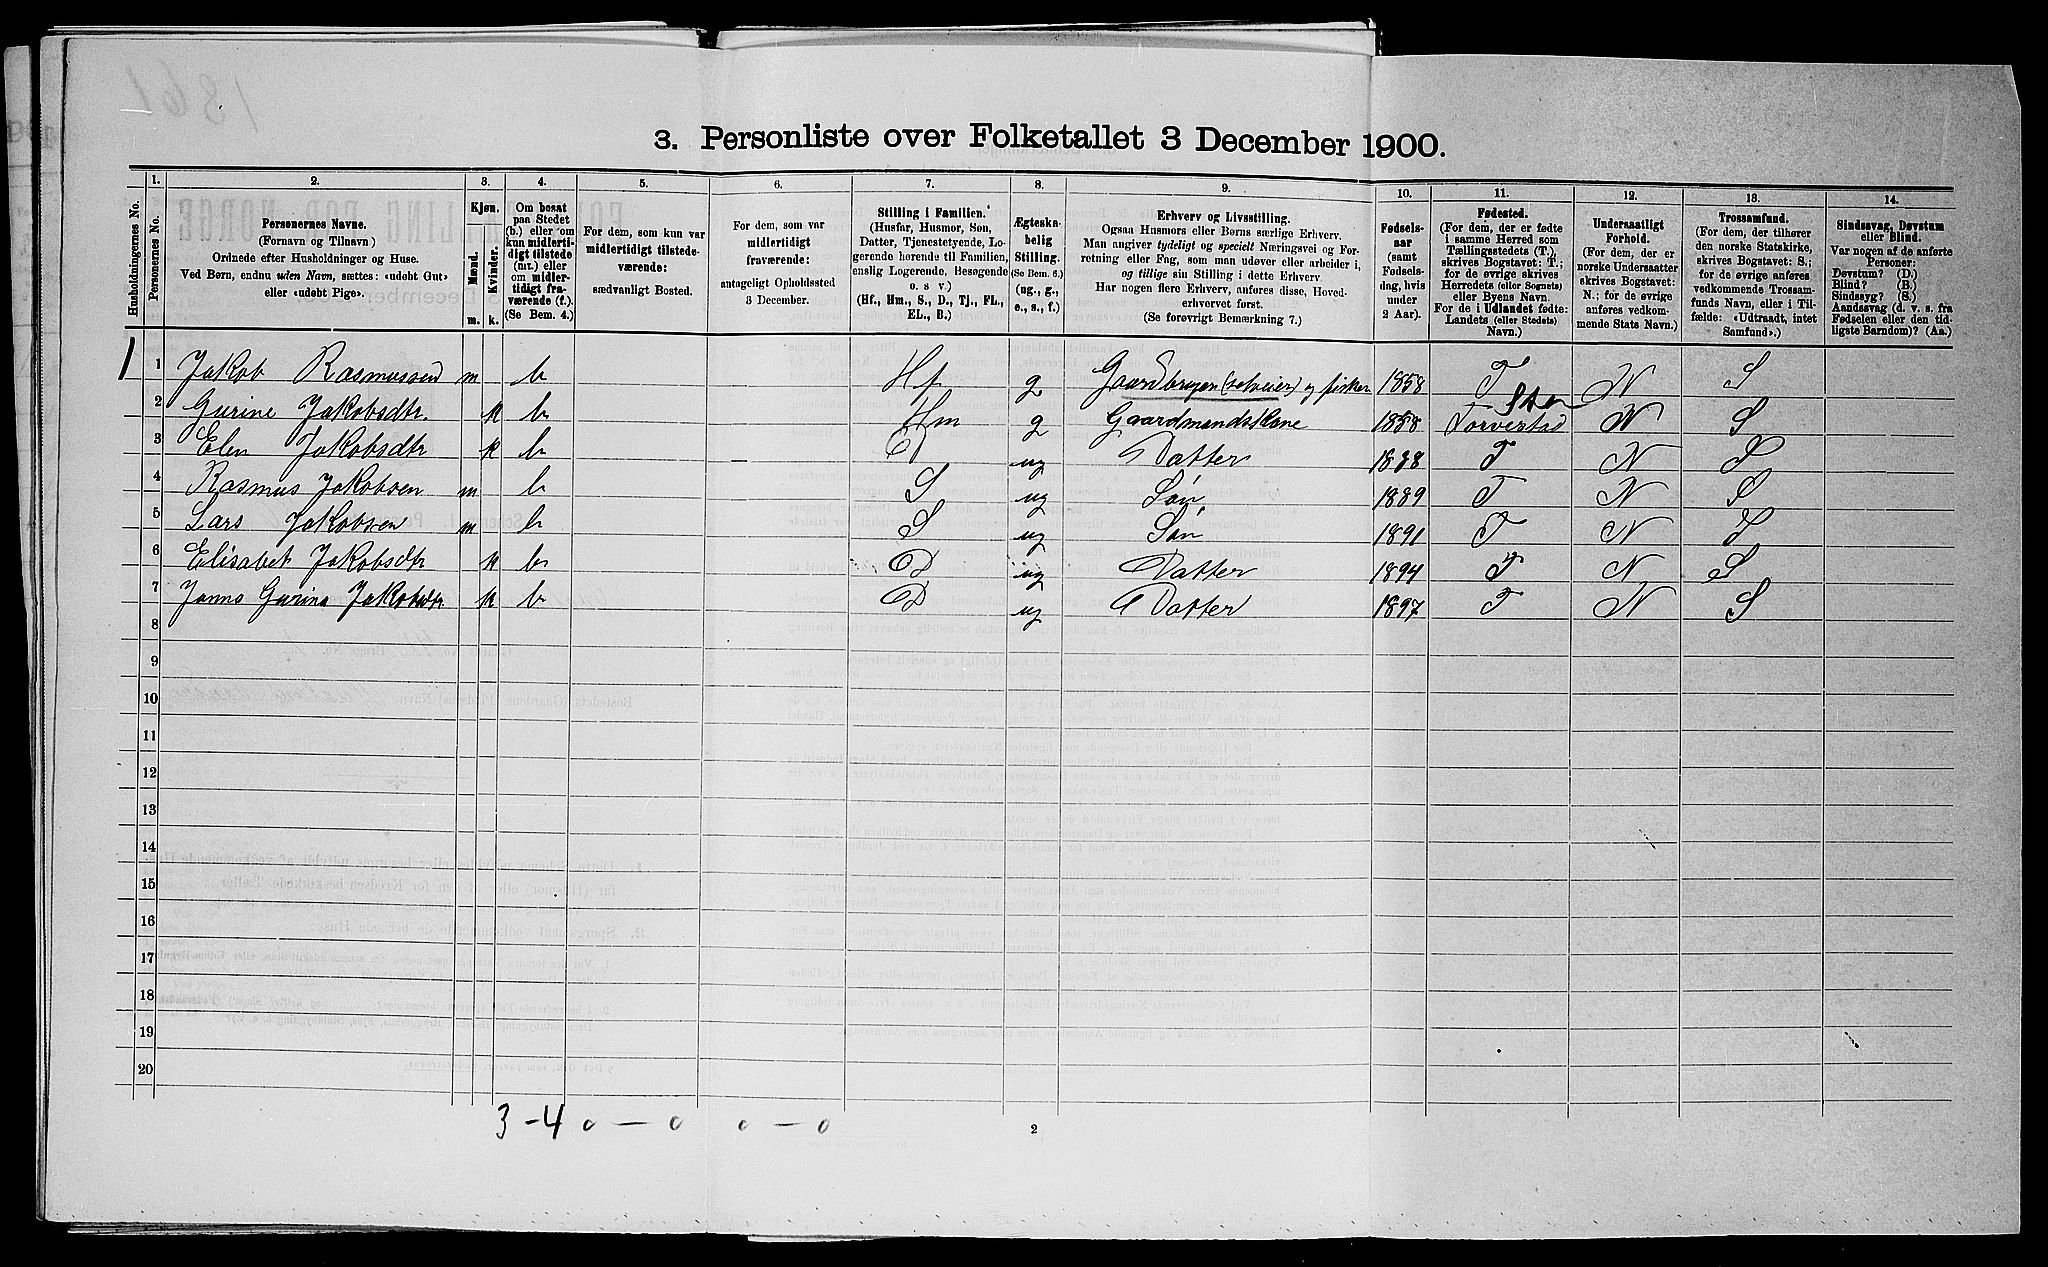 3. Personliste over Folketallet 3 December 1900.
Husholdningernes No.
1.
Personernes No.
2.
Personernes Navne.
(Fornavn og Tilnavn)
Ordnede efter Husholdninger og Huse.
Ved Børn, endnu uden Navn, sættes: «udøbt Gut»
eller «udøbt Pige».
3.
Kjøn.
Mænd.
Kvinder.
m.
k.
4.
Om bosat
paa Stedet
(b.) eller om
kun midlerti-
digt tilstede
(mt.) eller
om midler-
tidigt fra-
værende (f.)
(Se Bem. 4.)
5.
For dem, som kun var
midlertidigt tilstede-
værende:
sædvanligt Bosted.
6.
For dem, som var
midlertidigt
fraværende:
antageligt Opholdssted
3 December.
7.
Stilling i Familien.
(Husfar, Husmor, Søn,
Datter, Tjenestetyende, Lo-
gerende hørende til Familien,
enslig Logerende, Besøgende
o. s. v.)
(Hf., Hm., S., D., Tj., FL.,
EL., B.)
8.
Ægteska-
belig
Stilling.
(Se Bem. 6.)
(ug., g.,
e., s., f.)
9.
Erhverv og Livsstilling.
Ogsaa Husmors eller Børns særlige Erhverv.
Man angiver tydeligt og specielt Næringsvei og For-
retning eller Fag, som man udøver eller arbeider i,
og tillige sin Stilling i dette Erhverv
Har nogen flere Erhverv, anføres disse, Hoved-
erhvervet først.
(Se forøvrigt Bemærkning 7.)
10.
Fødsels-
aar
(samt
Fødsels-
dag, hvis
under
2 Aar).
11.
Fødested.
(For dem, der er fødte
i samme Herred som
Tællingsstedets (T.),
skrives Bogstavet: T.;
for de øvrige skrives
Herredets (eller Sognets)
eller Byens Navn.
For de i Udlandet fødte:
Landets (eller Stedets)
Navn.)
12.
Undersaatligt
Forhold.
(For dem, der er
norske Undersaatter
skrives Bogstavet:
N.; for de øvrige
anføres vedkom-
mende Stats Navn.)
13.
Trossamfund.
(For dem, der tilhører
den norske Statskirke,
skrives Bogstavet: S.;
for de øvrige anføres
vedkommende Trossam-
funds Navn, eller i Til-
fælde: «Udtraadt, intet
Samfund».)
14.
Sindssvag, Døvstum
eller Blind.
Var nogen af de anførte
Personer:
Døvstum? (D.)
Blind? (B.)
Sindssyg? (S.)
Aandssvag (d. v. s. fra
Fødselen eller den tid-
ligste Barndom)? (Aa.)
1 1 Jakob Rasmussen m b Hf g Gaardbruger (selveier) og fisker 1858 T N S
2 Gurine Jakobsdtr. k b Hm g Gaardmandskone 1858 Torvestad N S
3 Elen Jakobsdtr k b D ug Datter 1888 T N S
4 Rasmus Jakobsen m b S ug Søn 1889 T N S
5 Lars Jakobsen m b S ug Søn 1891 T N S
6 Elisabet Jakobsdtr k b D ug Datter 1894 T N S
7 Janna Gurina Jakobsdtr. k b D ug Datter 1897 T N S
8
9
10
11
12
13
14
15
16
17
18
19
20
3-4 0-0 0-0
2